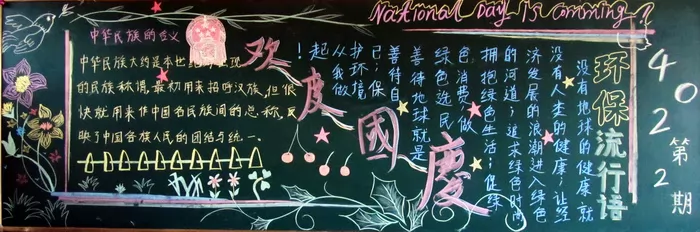 National Day is comming!
402第2期
环保流行语
没有地球的健康就
没有人类的健康;让经
济发展的浪潮进入绿色
的河道;追求绿色时尚
拥抱绿色生活;促绿
色消费,做
绿色选民
善待地球就是
善待自
己;保
护环境
从我做
起!
欢度國慶
中华民族的含义
中华民族大约是本世纪初出现
的民族称谓.最初用来招呼汉族.但很
快就用来作中国各民族间的总称,反
映了中国各族人民的团结与统一.